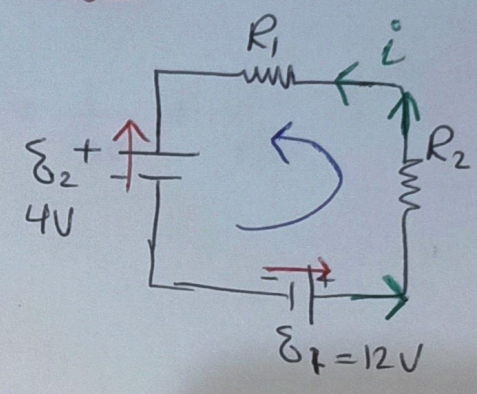 R₁
i
R₂
ℰ₂ +
-
4V
- +
ℰ₁ = 12V